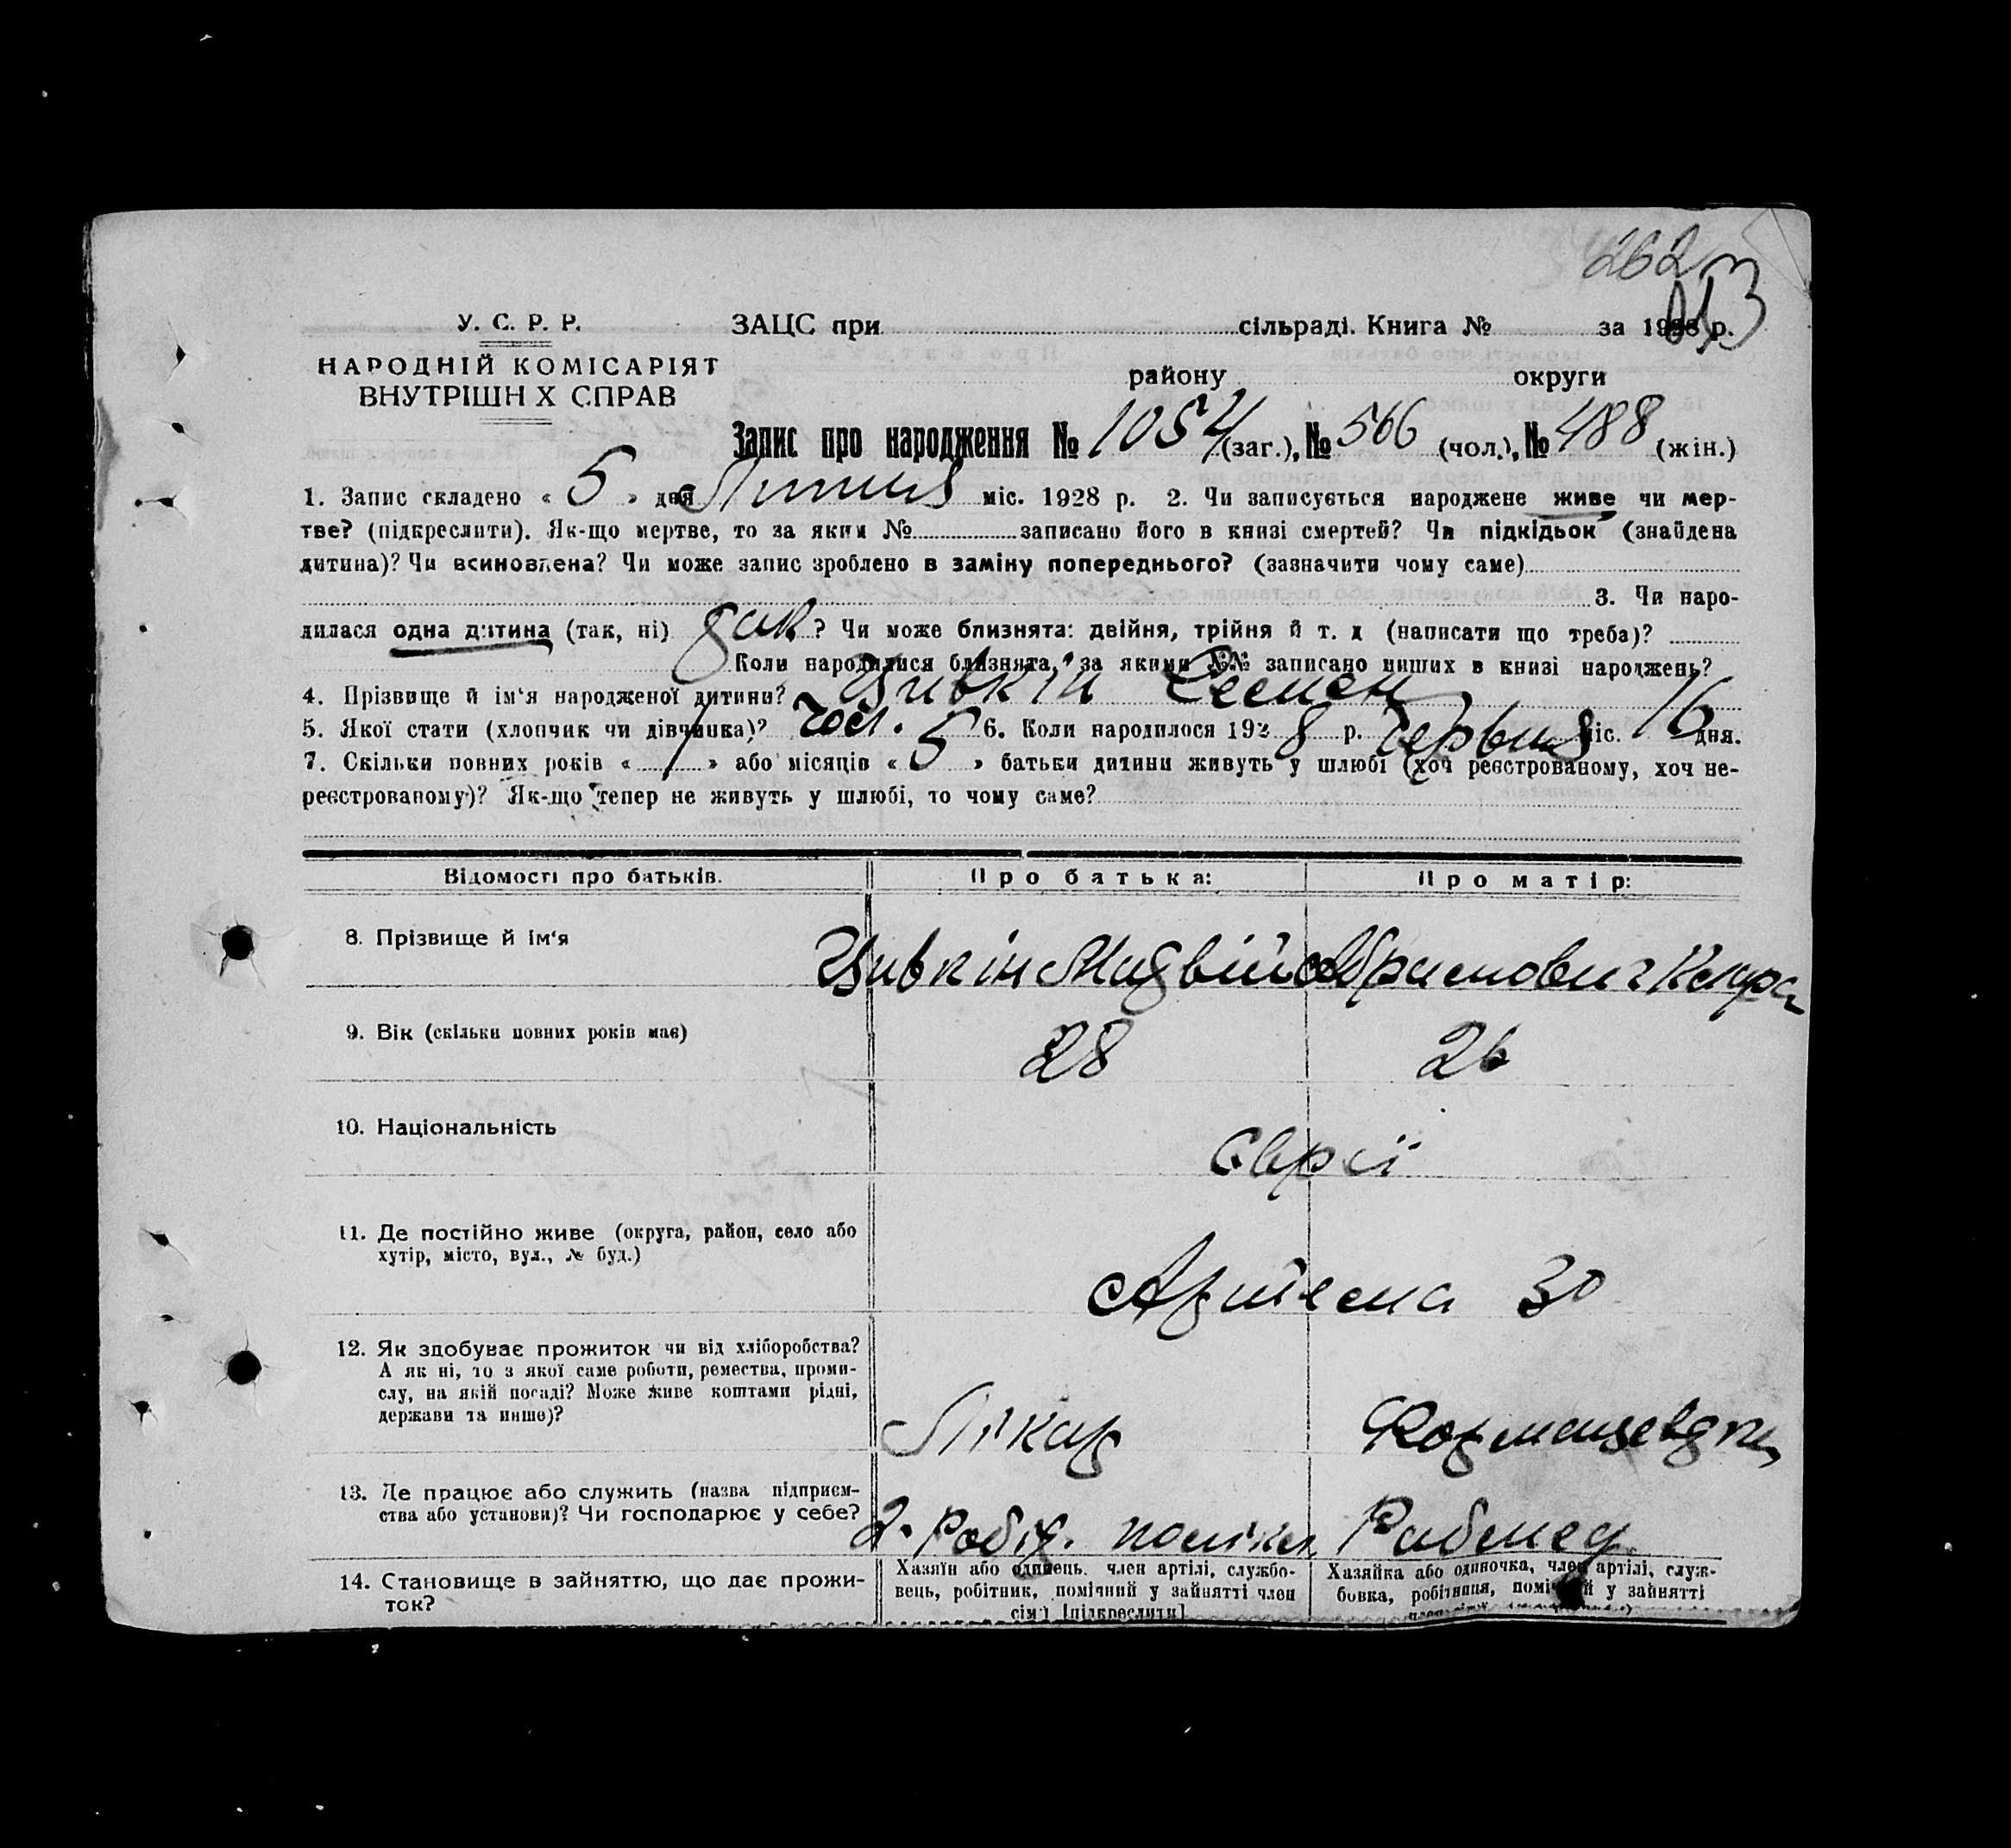 262
У. С. Р. Р.
НАРОДНІЙ КОМІСАРІЯТ
ВНУТРІШН Х СПРАВ
ЗАЦС при сільраді. Книга № за 1928 р.
району округи
Запис про народження № 1054 (заг.), № 566 (чол.), № 488 (жін.)
1. Запис складено « 5 » дня Липня міс. 1928 р. 2. Чи записується народжене живе чи мер-
тве? (підкреслити). Як-що мертве, то за яким № записано його в книзі смертей? Чи підкідьок (знайдена
дитина)? Чи всиновлена? Чи може запис зроблено в заміну попереднього? (зазначити чому саме)
3. Чи наро-
дилася одна дитина (так, ні) так? Чи може близнята: двійня, трійня й т. д (написати що треба)?
Коли народилися близнята, за якими №№ записано инших в книзі народжень?
4. Прізвище й ім'я народженої дитини? Цивкін Семен
5. Якої стати (хлопчик чи дівчинка)? чол. 6. Коли народилося 1928 р. Червня міс. 16 дня.
7. Скільки повних років « 1 » або місяців « 5 » батьки дитини живуть у шлюбі (хоч реєстрованому, хоч не-
реєстрованому)? Як-що тепер не живуть у шлюбі, то чому саме?
Відомості про батьків. Про батька: Про матір:
8. Прізвище й ім'я Цивкін Мадвій Абрамович Клара
9. Вік (скільки повних років має) 28 26
10. Національність Євреї
11. Де постійно живе (округа, район, село або
хутір, місто, вул., № буд.)
Артема 30
12. Як здобуває прожиток чи від хліборобства?
А як ні, то з якої саме роботи, ремества, проми-
слу, на якій посаді? Може живе коштами рідні,
держави та инше)?
Лікар Фармацевтка
13. Де працює або служить (назва підприєм-
ства або установи)? Чи господарює у себе?
2. Робіт. полікл. Рабмед
14. Становище в зайняттю, що дає прожи-
ток?
Хазяїн або одинець, член артілі, службо-
вець, робітник, помічний у зайнятті член
сім'ї [підкреслити]
Хазяйка або одиночка, член артілі, служ-
бовка, робітниця, помічний у зайнятті